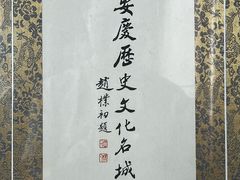 安慶歷史文化名城
趙樸初題